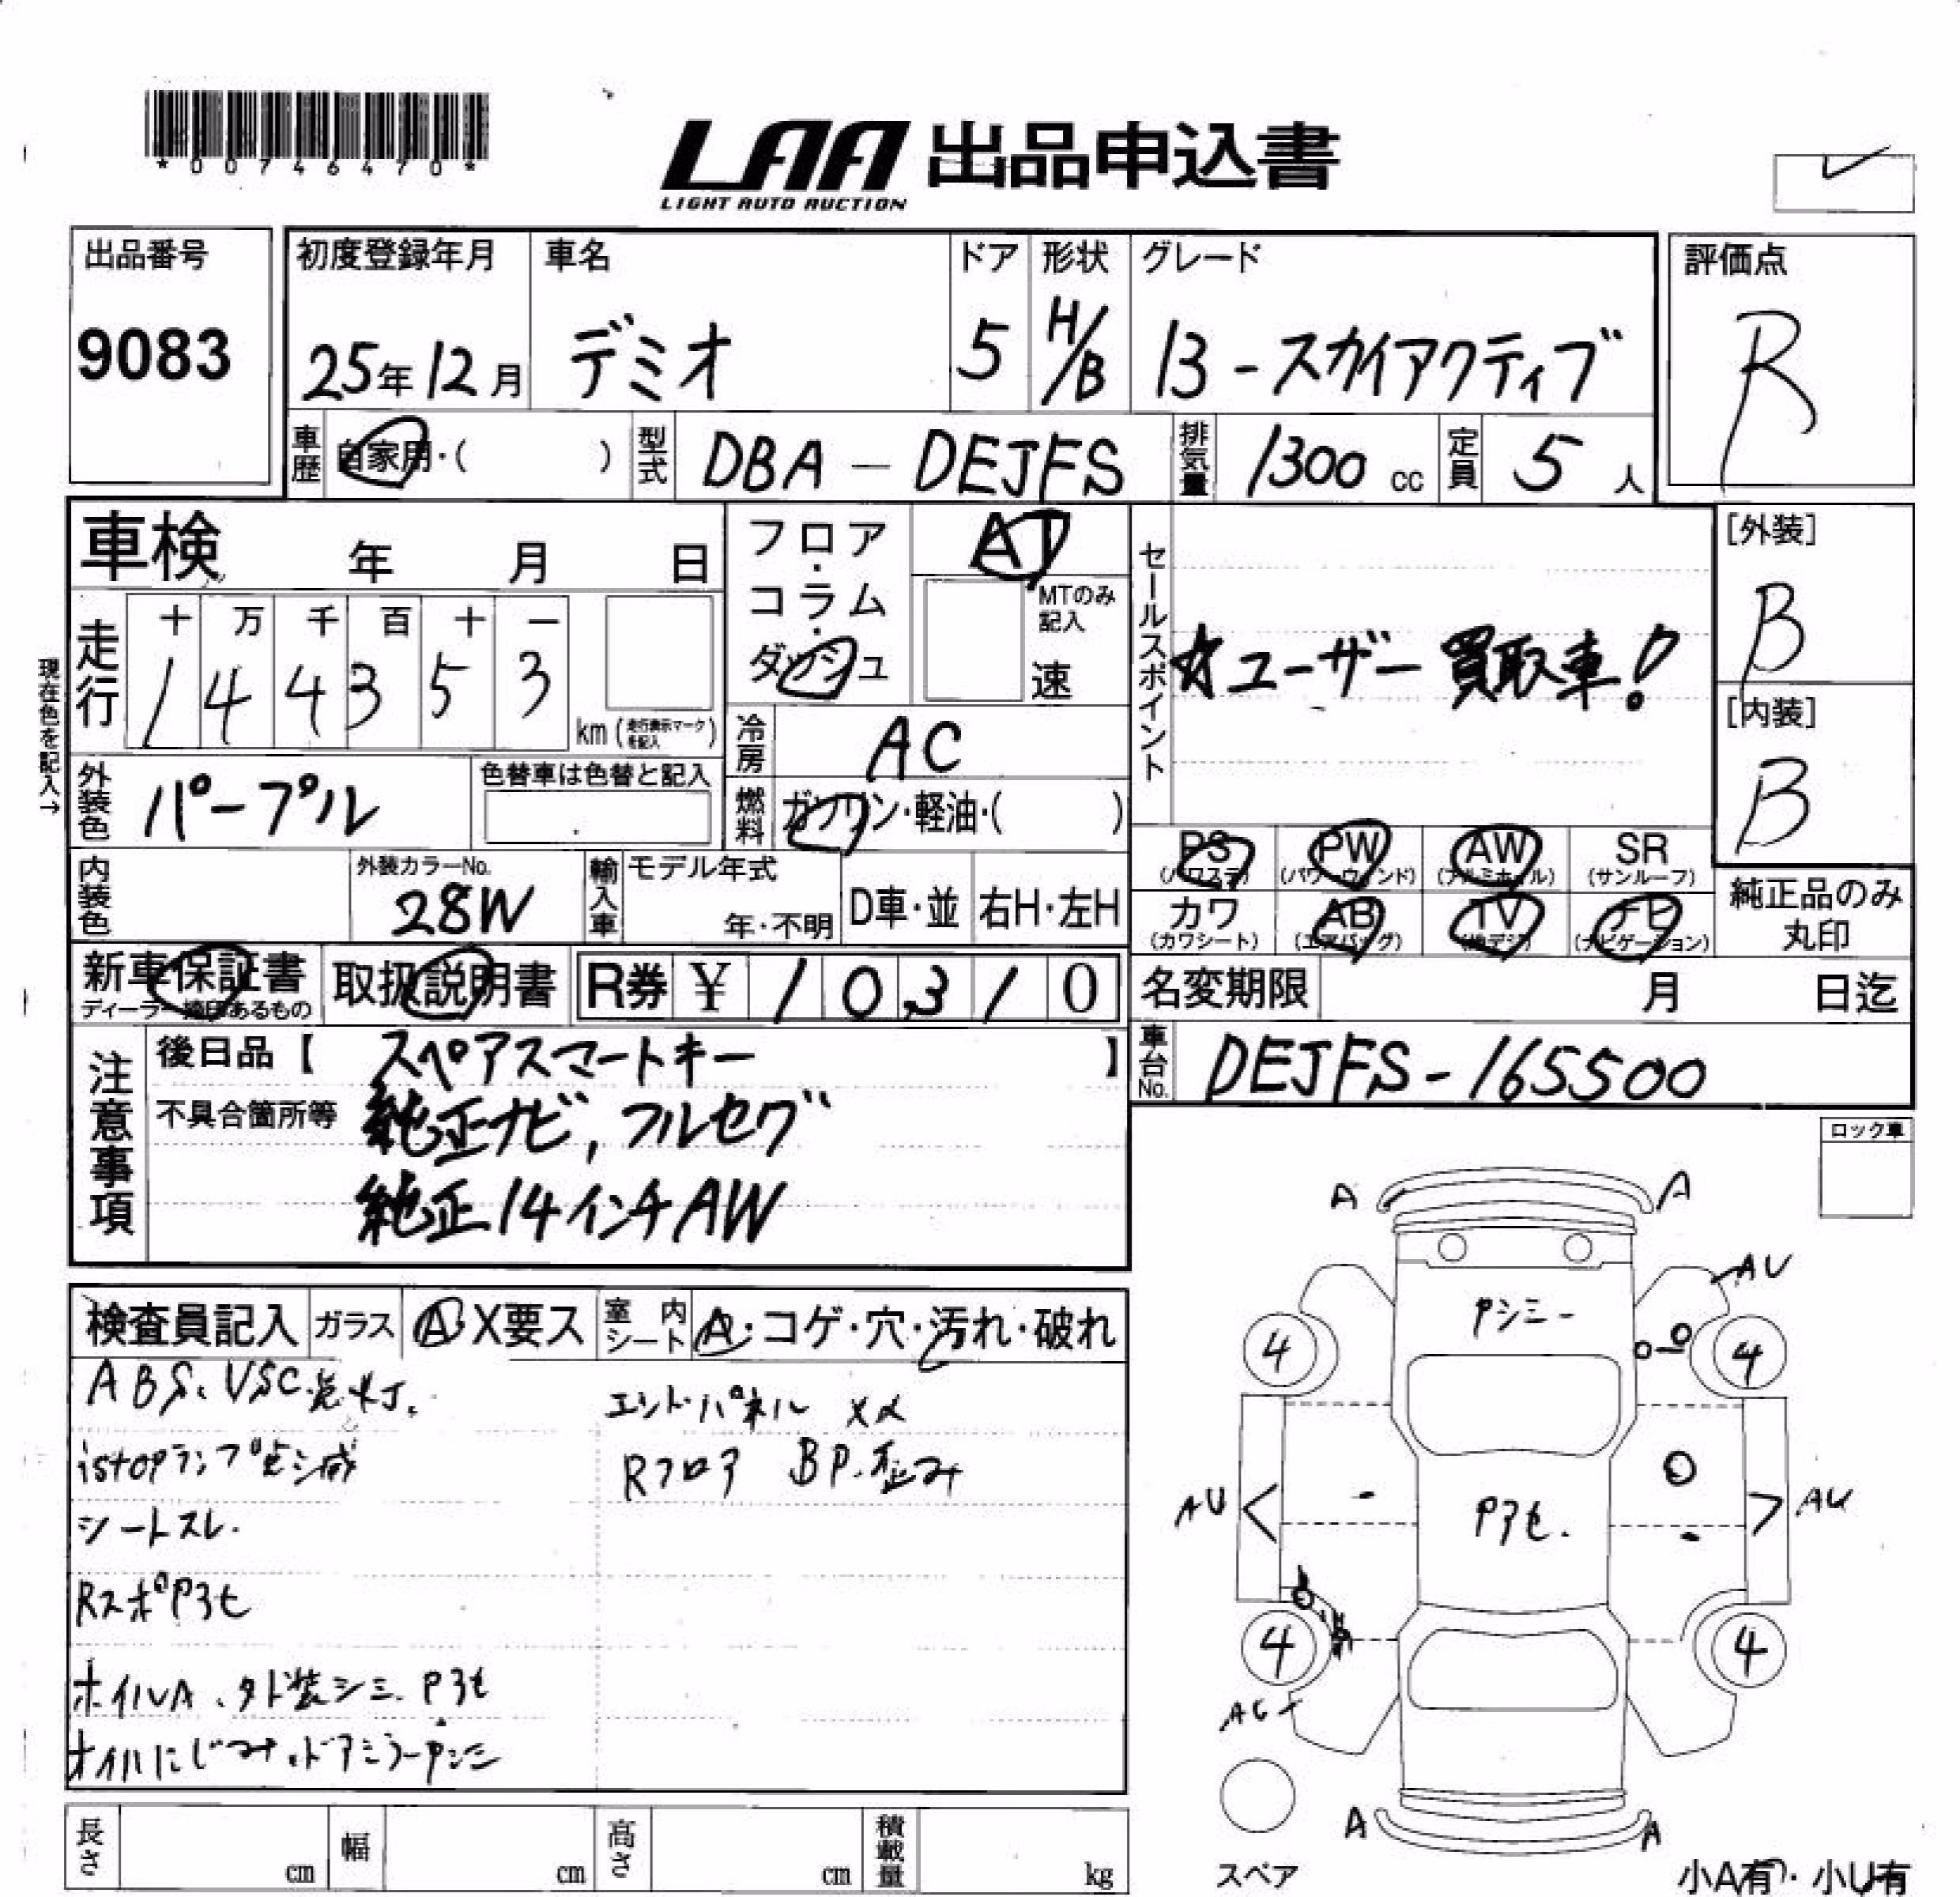 *00746470*
LAA 出品申込書
LIGHT AUTO AUCTION
出品番号
9083
初度登録年月
25年12月
車名
デミオ
ドア
5
形状
H/B
グレード
13-スカイアクティブ
評価点
R
車歴 自家用・( )
型式 DBA-DEJFS
排気量 1300 cc
定員 5 人
車検 年 月 日
フロア・コラム・ダッシュ
AT
MTのみ記入
速
セールスポイント
☆ユーザー買取車!
[外装]
B
[内装]
B
現在色を記入→
走行
十 万 千 百 十 一
1 4 4 3 5 3
km(走行表示マークを記入)
冷房 AC
外装色 パープル
色替車は色替と記入
燃料 ガソリン・軽油・( )
内装色
外装カラーNo.
28W
輸入車 モデル年式
年・不明
D車・並
右H・左H
PS (パワステ)
PW (パワーウィンド)
AW (アルミホイル)
SR (サンルーフ)
カワ (カワシート)
AB (エアバッグ)
TV (地デジ)
ナビ (ナビゲーション)
純正品のみ丸印
新車保証書
ディーラー捺印あるもの
取扱説明書
R券 ¥ 10,310
名変期限 月 日迄
注意事項
後日品【 スペアスマートキー 】
不具合箇所等 純正ナビ, フルセグ
純正14インチAW
車台No. DEJFS-165500
ロック車
検査員記入
ガラス A・X要ス
室内シート A・コゲ・穴・汚れ・破れ
ABS、VSC点灯、
istopランプ点滅
シートスレ.
RスポPアセ
ホイルA、外装シミ.Pアセ
オイルにじみ.ドアミラーPシミ
エンドパネル XX
Rフロア BP.歪み
A
A
AU
Pシミー
4
4
AU
AU
Pアセ.
4
4
A
A
スペア
小A有・小U有
長さ cm
幅 cm
高さ cm
積載量 kg